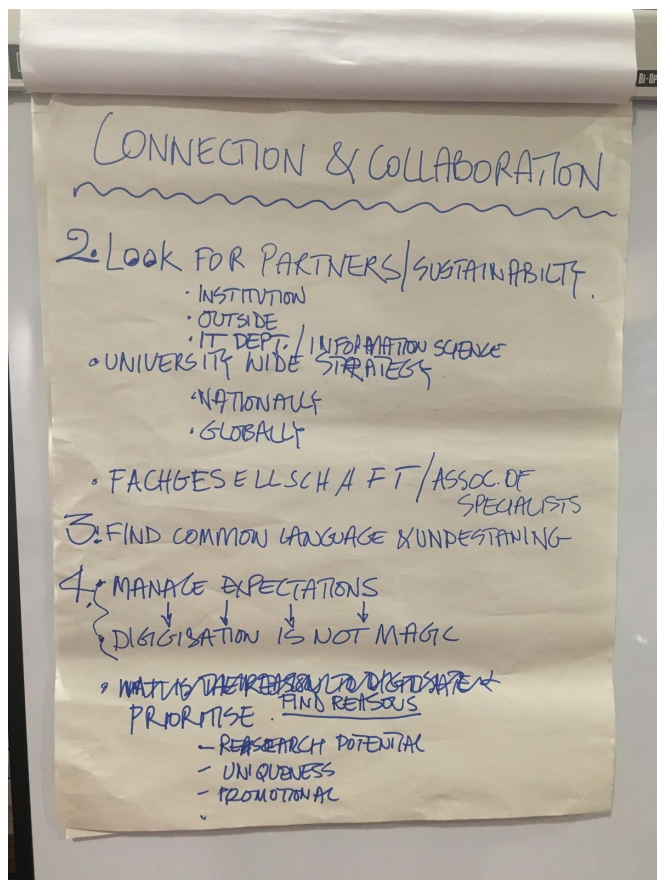 CONNECTION & COLLABORATION
2. LOOK FOR PARTNERS/SUSTAINABILTY.
· INSTITUTION
· OUTSIDE
· IT DEPT./INFORMATION SCIENCE
· UNIVERSITY WIDE STRATEGY
· NATIONALLY
· GLOBALLY
· FACHGESELLSCHAFT/ASSOC. OF
SPECIALISTS
3. FIND COMMON LANGUAGE & UNDESTANING
4. · MANAGE EXPECTATIONS
↓ ↓ ↓ ↓
· DIGIGISATION IS NOT MAGIC
· WHAT IS THEIR REASON TO DIGITISATE &
PRIORITISE. FIND REASONS
- RESEARCH POTENTIAL
- UNIQUENESS
- PROMOTIONAL
Bi-Of